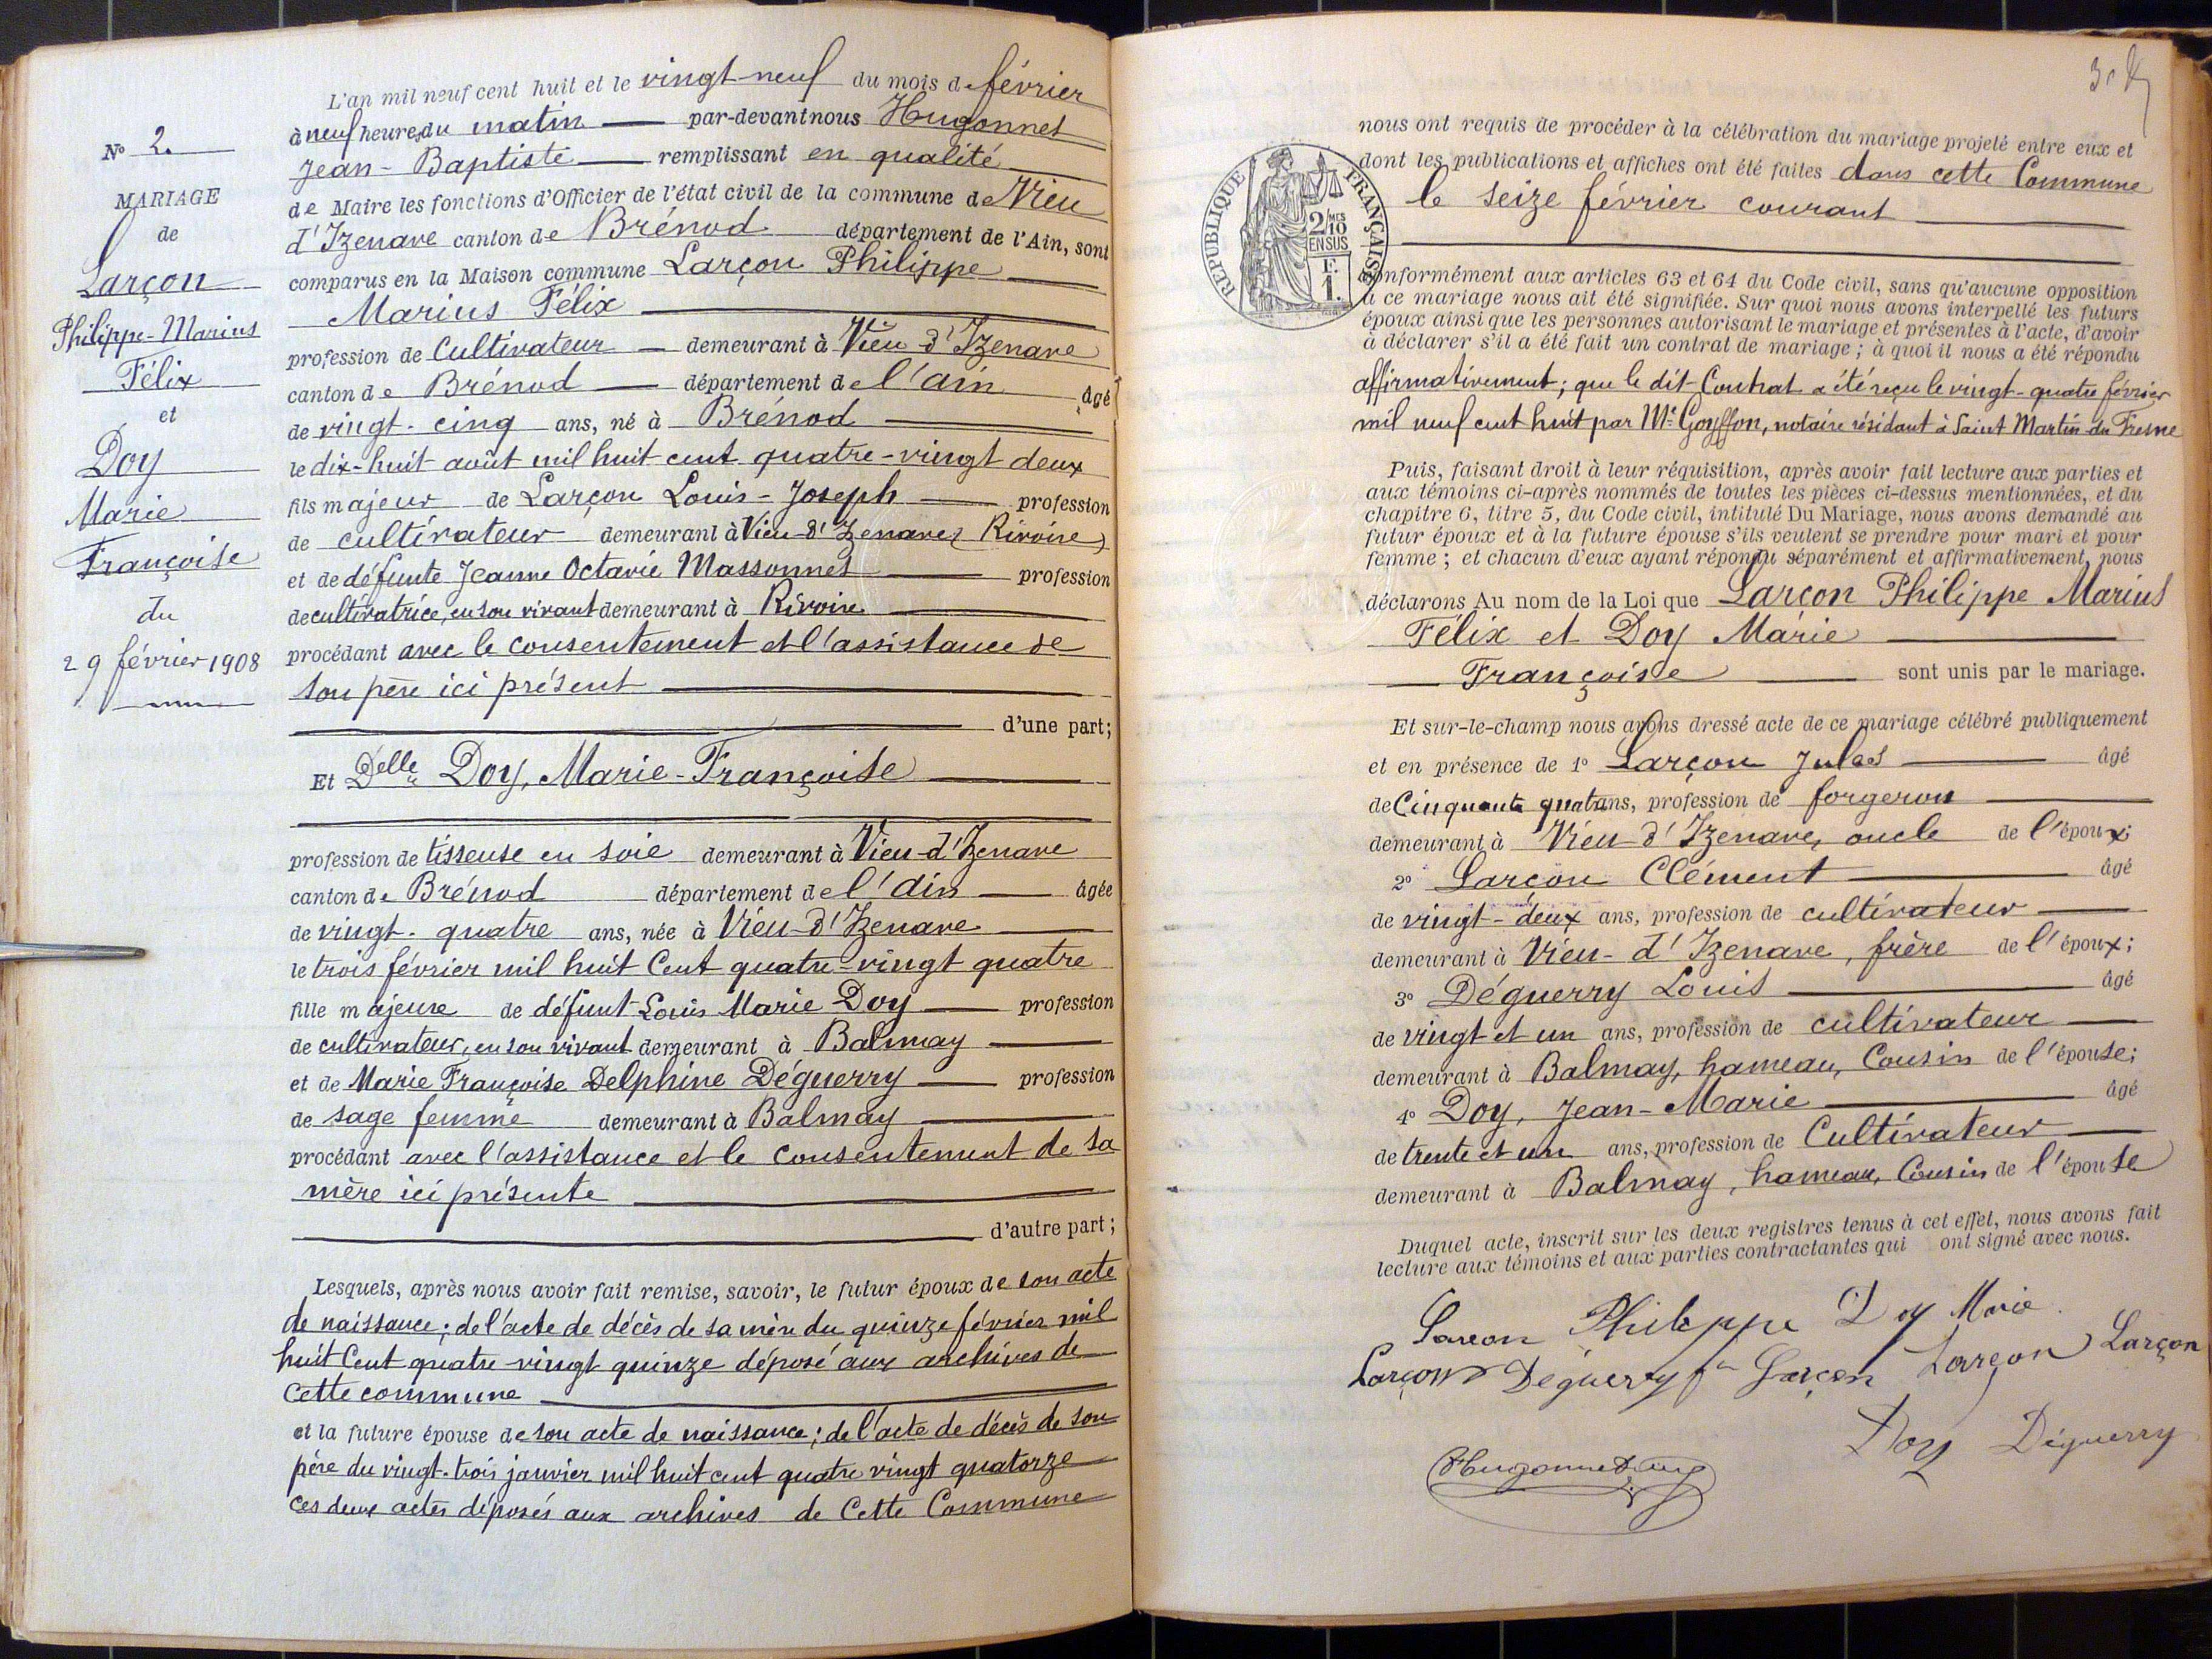 N° 2.
MARIAGE
de
Larçon
Philippe-Marius
Félix
et
Doy
Marie
Françoise
du
29 février 1908
L'an mil neuf cent huit et le vingt-neuf du mois de février
à neuf heures du matin par-devant nous Hugonnet
Jean-Baptiste remplissant en qualité
de Maire les fonctions d'Officier de l'état civil de la commune de Vieu
d'Izenave canton de Brénod département de l'Ain, sont
comparus en la Maison commune Larçon Philippe
Marius Félix
profession de Cultivateur demeurant à Vieu-d'Izenave
canton de Brénod département de l'ain âgé
de vingt-cinq ans, né à Brénod
le dix-huit août mil huit cent quatre-vingt deux
fils majeur de Larçon Louis-Joseph profession
de cultivateur demeurant à Vieu-d'Izenave (Rivoire)
et de défunte Jeanne Octavie Massonnet profession
de cultivatrice, en son vivant demeurant à Rivoire
procédant avec le consentement et l'assistance de
son père ici présent
d'une part;
Et Delle Doy, Marie-Françoise
profession de tisseuse en soie demeurant à Vieu-d'Izenave
canton de Brénod département de l'ain âgée
de vingt-quatre ans, née à Vieu-d'Izenave
le trois février mil huit Cent quatre-vingt quatre
fille majeure de défunt Louis Marie Doy profession
de cultivateur, en son vivant demeurant à Balmay
et de Marie Françoise Delphine Déguerry profession
de sage femme demeurant à Balmay
procédant avec l'assistance et le consentement de sa
mère ici présente
d'autre part;
Lesquels, après nous avoir fait remise, savoir, le futur époux de son acte
de naissance; de l'acte de décès de sa mère du quinze février mil
huit Cent quatre vingt quinze déposé aux archives de
cette commune
et la future épouse de son acte de naissance; de l'acte de décès de son
père du vingt-trois janvier mil huit cent quatre vingt quatorze
ces deux actes déposés aux archives de Cette Commune
RÉPUBLIQUE FRANÇAISE
2/10 MES
EN SUS
F.
1.
nous ont requis de procéder à la célébration du mariage projeté entre eux et
dont les publications et affiches ont été faites dans cette Commune
le seize février courant
conformément aux articles 63 et 64 du Code civil, sans qu'aucune opposition
à ce mariage nous ait été signifiée. Sur quoi nous avons interpellé les futurs
époux ainsi que les personnes autorisant le mariage et présentes à l'acte, d'avoir
à déclarer s'il a été fait un contrat de mariage; à quoi il nous a été répondu
affirmativement; que le dit Contrat a été reçu le vingt-quatre février
mil neuf cent huit par Me Goyffon, notaire résidant à Saint Martin-du Fresne
Puis, faisant droit à leur réquisition, après avoir fait lecture aux parties et
aux témoins ci-après nommés de toutes les pièces ci-dessus mentionnées, et du
chapitre 6, titre 5, du Code civil, intitulé Du Mariage, nous avons demandé au
futur époux et à la future épouse s'ils veulent se prendre pour mari et pour
femme; et chacun d'eux ayant répondu séparément et affirmativement, nous
déclarons Au nom de la Loi que Larçon Philippe Marius
Félix et Doy Marie
Françoise sont unis par le mariage.
Et sur-le-champ nous avons dressé acte de ce mariage célébré publiquement
et en présence de 1° Larçon Jules âgé
de Cinquante quatre ans, profession de forgeron
demeurant à Vieu-d'Izenave, oncle de l'époux;
2° Larçon Clément âgé
de vingt-deux ans, profession de cultivateur
demeurant à Vieu-d'Izenave, frère de l'époux;
3° Déguerry Louis âgé
de vingt et un ans, profession de cultivateur
demeurant à Balmay, hameau, Cousin de l'épouse;
4° Doy, Jean-Marie âgé
de trente et un ans, profession de Cultivateur
demeurant à Balmay, hameau, Cousin de l'épouse
Duquel acte, inscrit sur les deux registres tenus à cet effet, nous avons fait
lecture aux témoins et aux parties contractantes qui ont signé avec nous.
Larcon Philippe Doy Marie
Larçon Déguerry Larçon Larçon Larçon
Doy Déguerry
Hugonnet